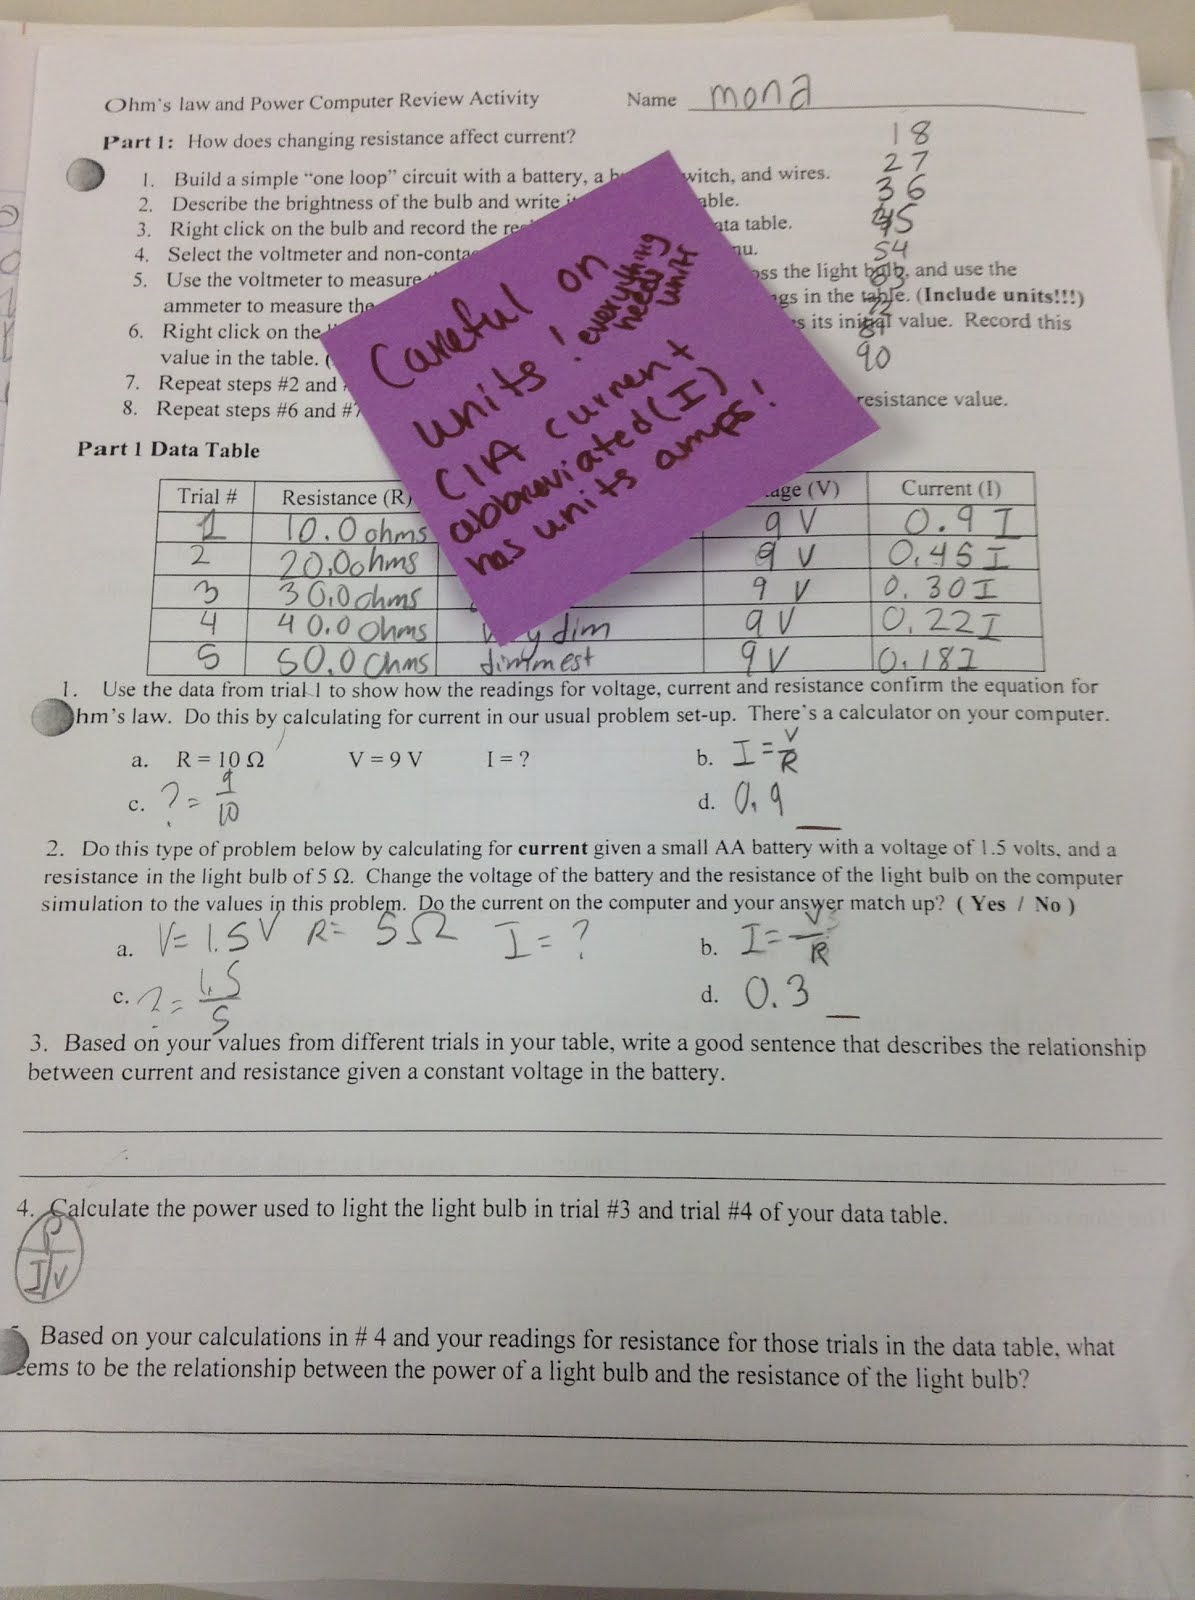 Ohm's law and Power Computer Review Activity Name mona
Part 1: How does changing resistance affect current?
18
27
36
45
54
90
1. Build a simple "one loop" circuit with a battery, a witch, and wires.
2. Describe the brightness of the bulb and write able.
3. Right click on the bulb and record the ata table.
4. Select the voltmeter and
5. Use the voltmeter to measure the light bulb, and use the
ammeter to measure the in the table. (Include units!!!)
6. Right click on the its initial value. Record this
value in the table. (
7. Repeat steps #2 and
8. Repeat steps #6 and #7 resistance value.
Careful on
units! everything
needs
units
(1A current
abbreviated (I)
has units amps!
Part 1 Data Table
Trial # Resistance (R) age (V) Current (I)
1 10.0 ohms 9 V 0.9 I
2 20.0 ohms 9 V 0.45 I
3 30.0 ohms 9 V 0.30 I
4 40.0 ohms y dim 9 V 0.22 I
5 50.0 ohms dimmest 9 V 0.18 I
1. Use the data from trial 1 to show how the readings for voltage, current and resistance confirm the equation for
hm's law. Do this by calculating for current in our usual problem set-up. There's a calculator on your computer.
a. R = 10 Ω V = 9 V I = ? b. I = V/R
c. ? = 9/10 d. 0.9
2. Do this type of problem below by calculating for current given a small AA battery with a voltage of 1.5 volts, and a
resistance in the light bulb of 5 Ω. Change the voltage of the battery and the resistance of the light bulb on the computer
simulation to the values in this problem. Do the current on the computer and your answer match up? ( Yes / No )
a. V= 1.5 V R= 5 Ω I = ? b. I = V/R
c. ? = 1.5/5 d. 0.3
3. Based on your values from different trials in your table, write a good sentence that describes the relationship
between current and resistance given a constant voltage in the battery.
4. Calculate the power used to light the light bulb in trial #3 and trial #4 of your data table.
P
I/V
Based on your calculations in # 4 and your readings for resistance for those trials in the data table, what
eems to be the relationship between the power of a light bulb and the resistance of the light bulb?